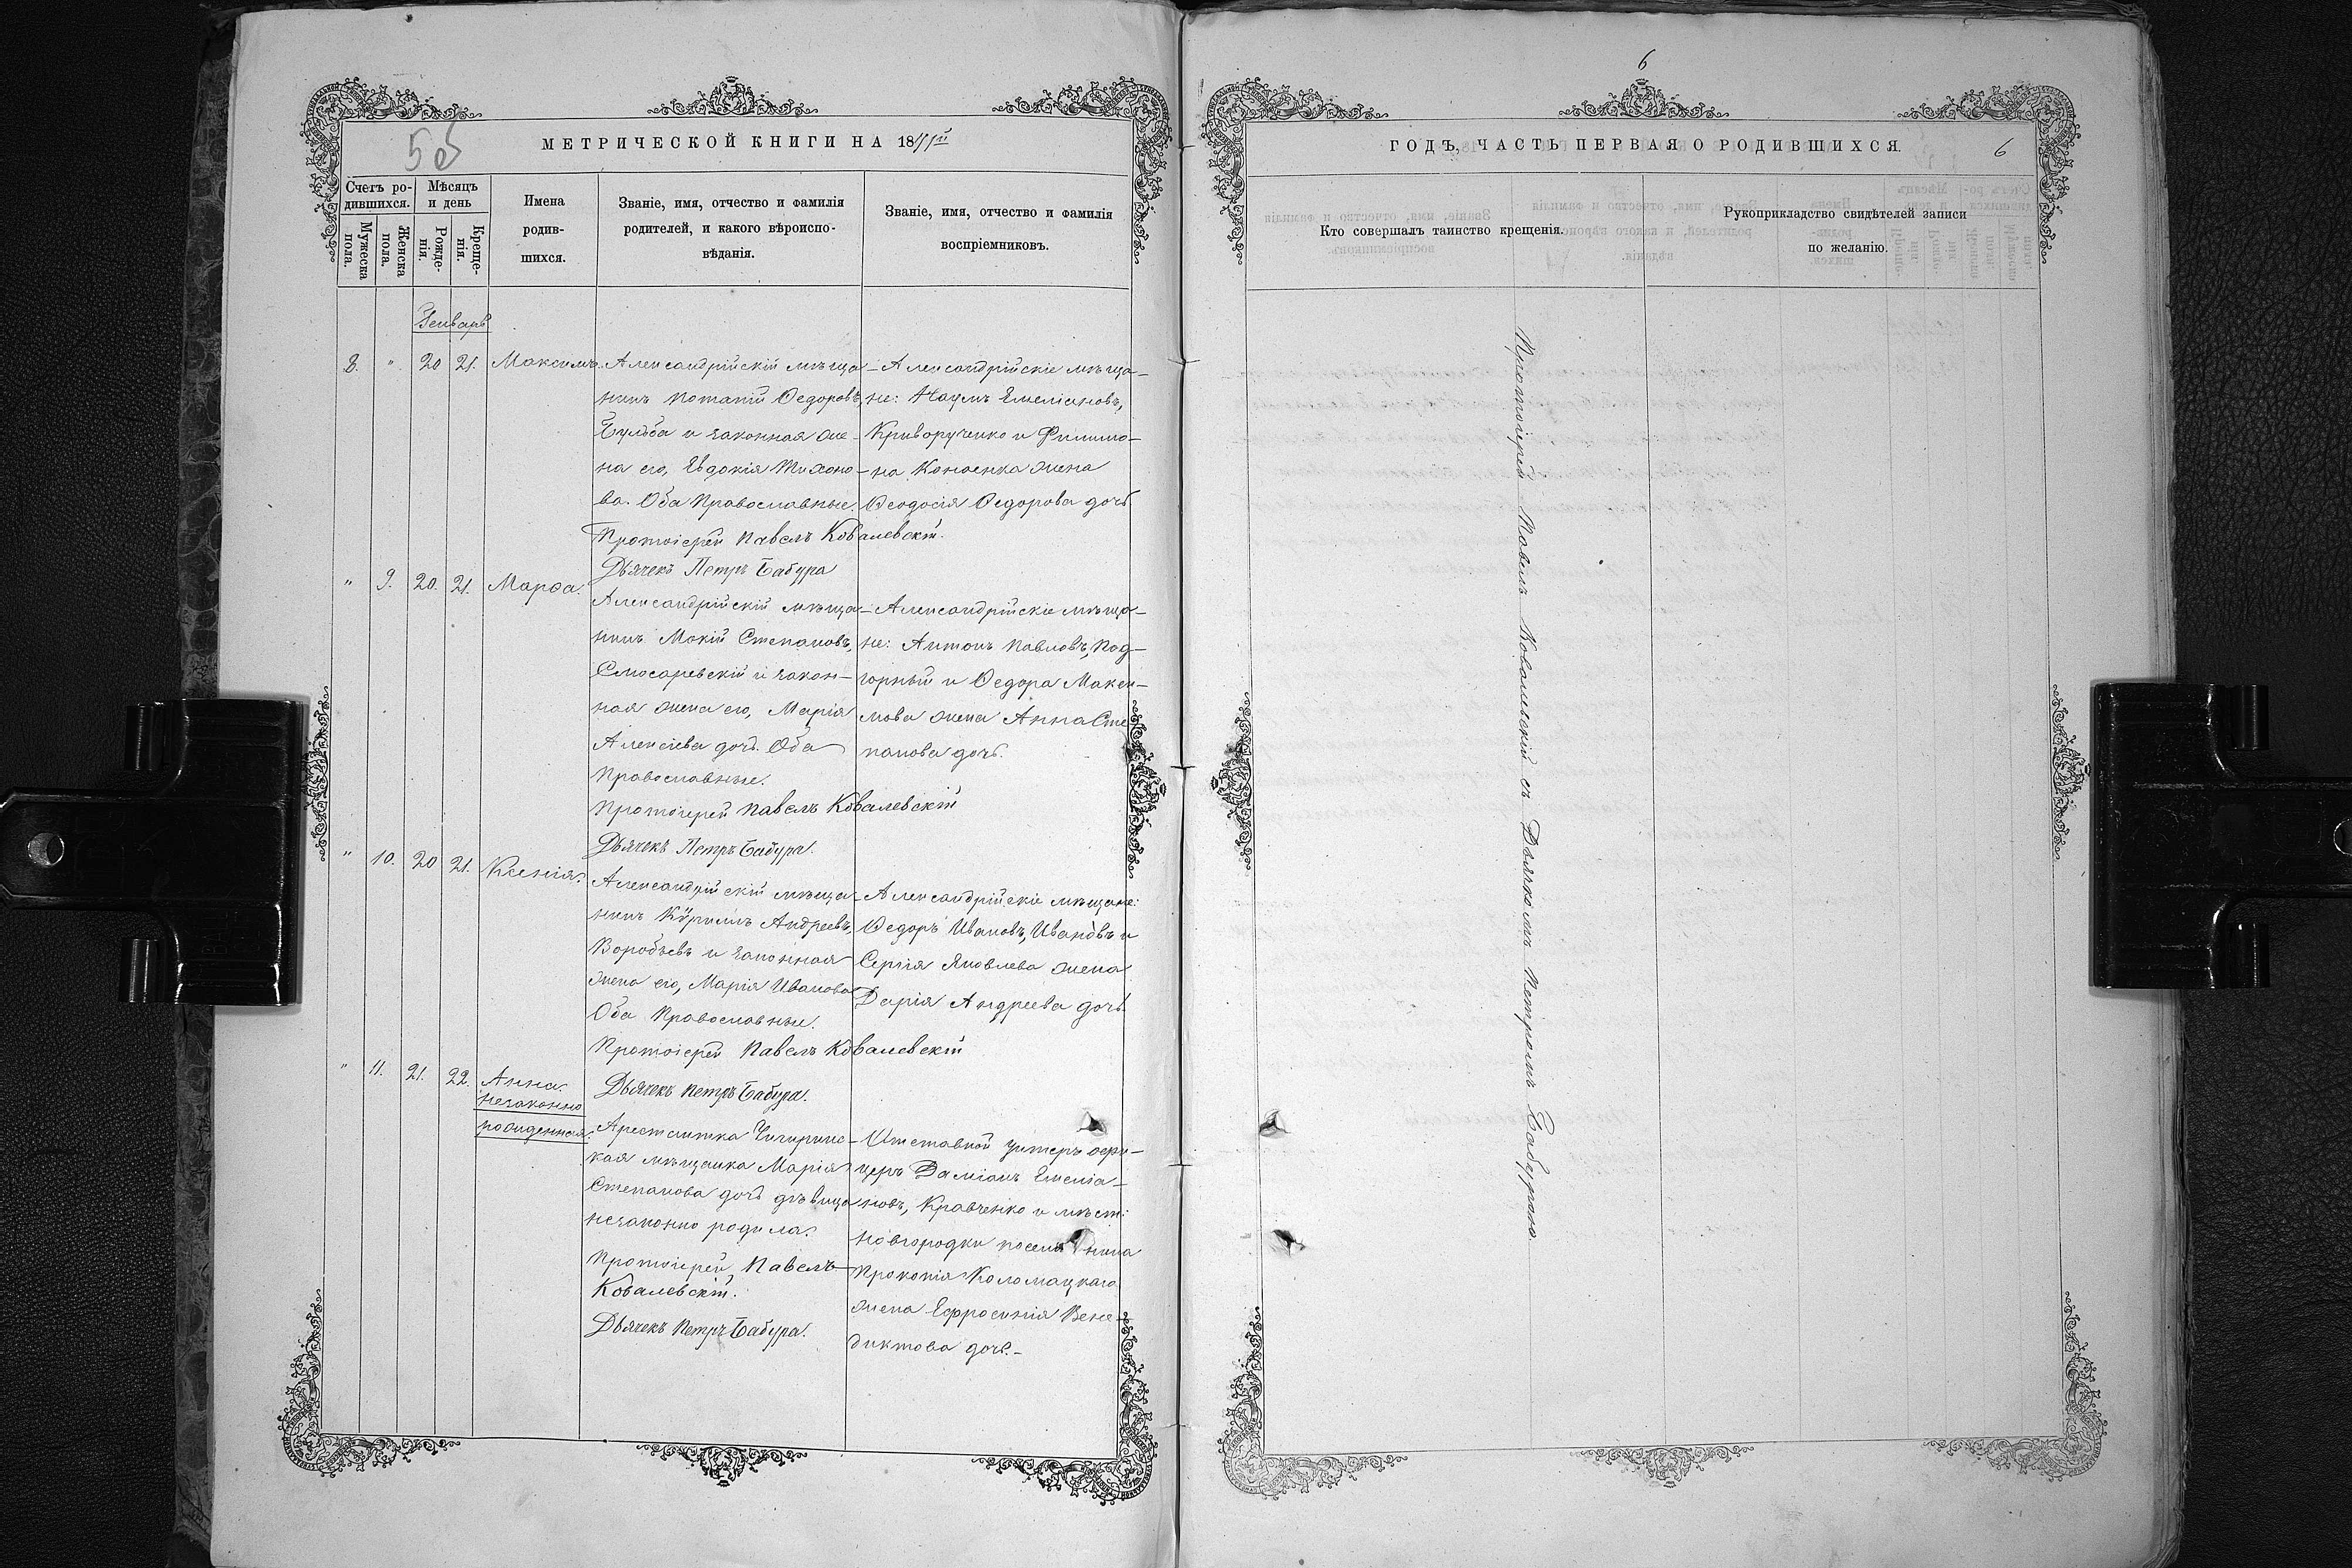 5об
МЕТРИЧЕСКОЙ КНИГИ НА 18
Счетъ ро-
дившихся.
Мужеска пола.
Женска пола.
Мѣсяцъ
и день
Рожде-
нія.
Креще-
нія.
Имена
родив-
шихся.
Званіе, имя, отчество и фамилія
родителей, и какого вѣроиспо-
вѣданія.
Званіе, имя, отчество и фамилія
воспріемниковъ.
Генварь
8. " 20 21. Максимъ.
Александрійскій мѣща-
нинъ Потапій Ѳедоровъ,
Бульба и законная же-
на его, Евдокія Тихоно-
ва. Оба Православные.
Протоіерей Павелъ Ковалевскій.
Дьячекъ Петръ Бабура
Александрійскіе мѣща-
не: Наумъ Емеліановъ,
Криворученко и Филимо-
на жена
Ѳеодосія Ѳедорова дочь.
" 9. 20. 21. Марѳа.
Александрійскій мѣща-
нинъ Мокій Степановъ,
Слюсаревскій и закон-
ная жена его, Марія
Алексіева дочь. Оба
Православные.
Протоіерей Павелъ Ковалевскій
Дьячекъ Петръ Бабура.
Александрійскіе мѣща-
не: Антонъ Павловъ, Под-
горный и Ѳедора Макси-
мова жена Анна Сте-
панова дочь.
" 10. 20 21. Ксенія.
Александрійскій мѣща-
нинъ Кѵриллъ Андреевъ,
Воробьевъ и законная
жена его, Марія Иванова
Оба Православные.
Протоіерей Павелъ Ковалевскій
Дьячекъ Петръ Бабура.
Александрійскіе мѣщане:
Ѳедоръ Ивановъ, Ивановъ и
Сергія Яковлева жена
Дарія Андреева дочь.
" 11. 21. 22. Анна.
незаконно
рожденная.
Арестантка Чигиринс-
кая мѣщанка Марія
Степанова дочь дѣвица
незаконно родила.
Протоіерей Павелъ
Ковалевскій.
Дьячекъ Петръ Бабура.
Отставной унтеръ офи-
церъ Даміанъ Емеліа-
новъ, Кравченко и мѣст:
Новгородки поселянина
Прокопія Коломацкаго
жена Ефросинія Вене-
диктова дочь.-
6
ГОДЪ, ЧАСТЬ ПЕРВАЯ О РОДИВШИХСЯ.
6
Кто совершалъ таинство крещенія.
Рукоприкладство свидѣтелей записи
по желанію.
Протоіерей Павелъ Ковалевскій съ Дьячкомъ Петромъ Бабурою.